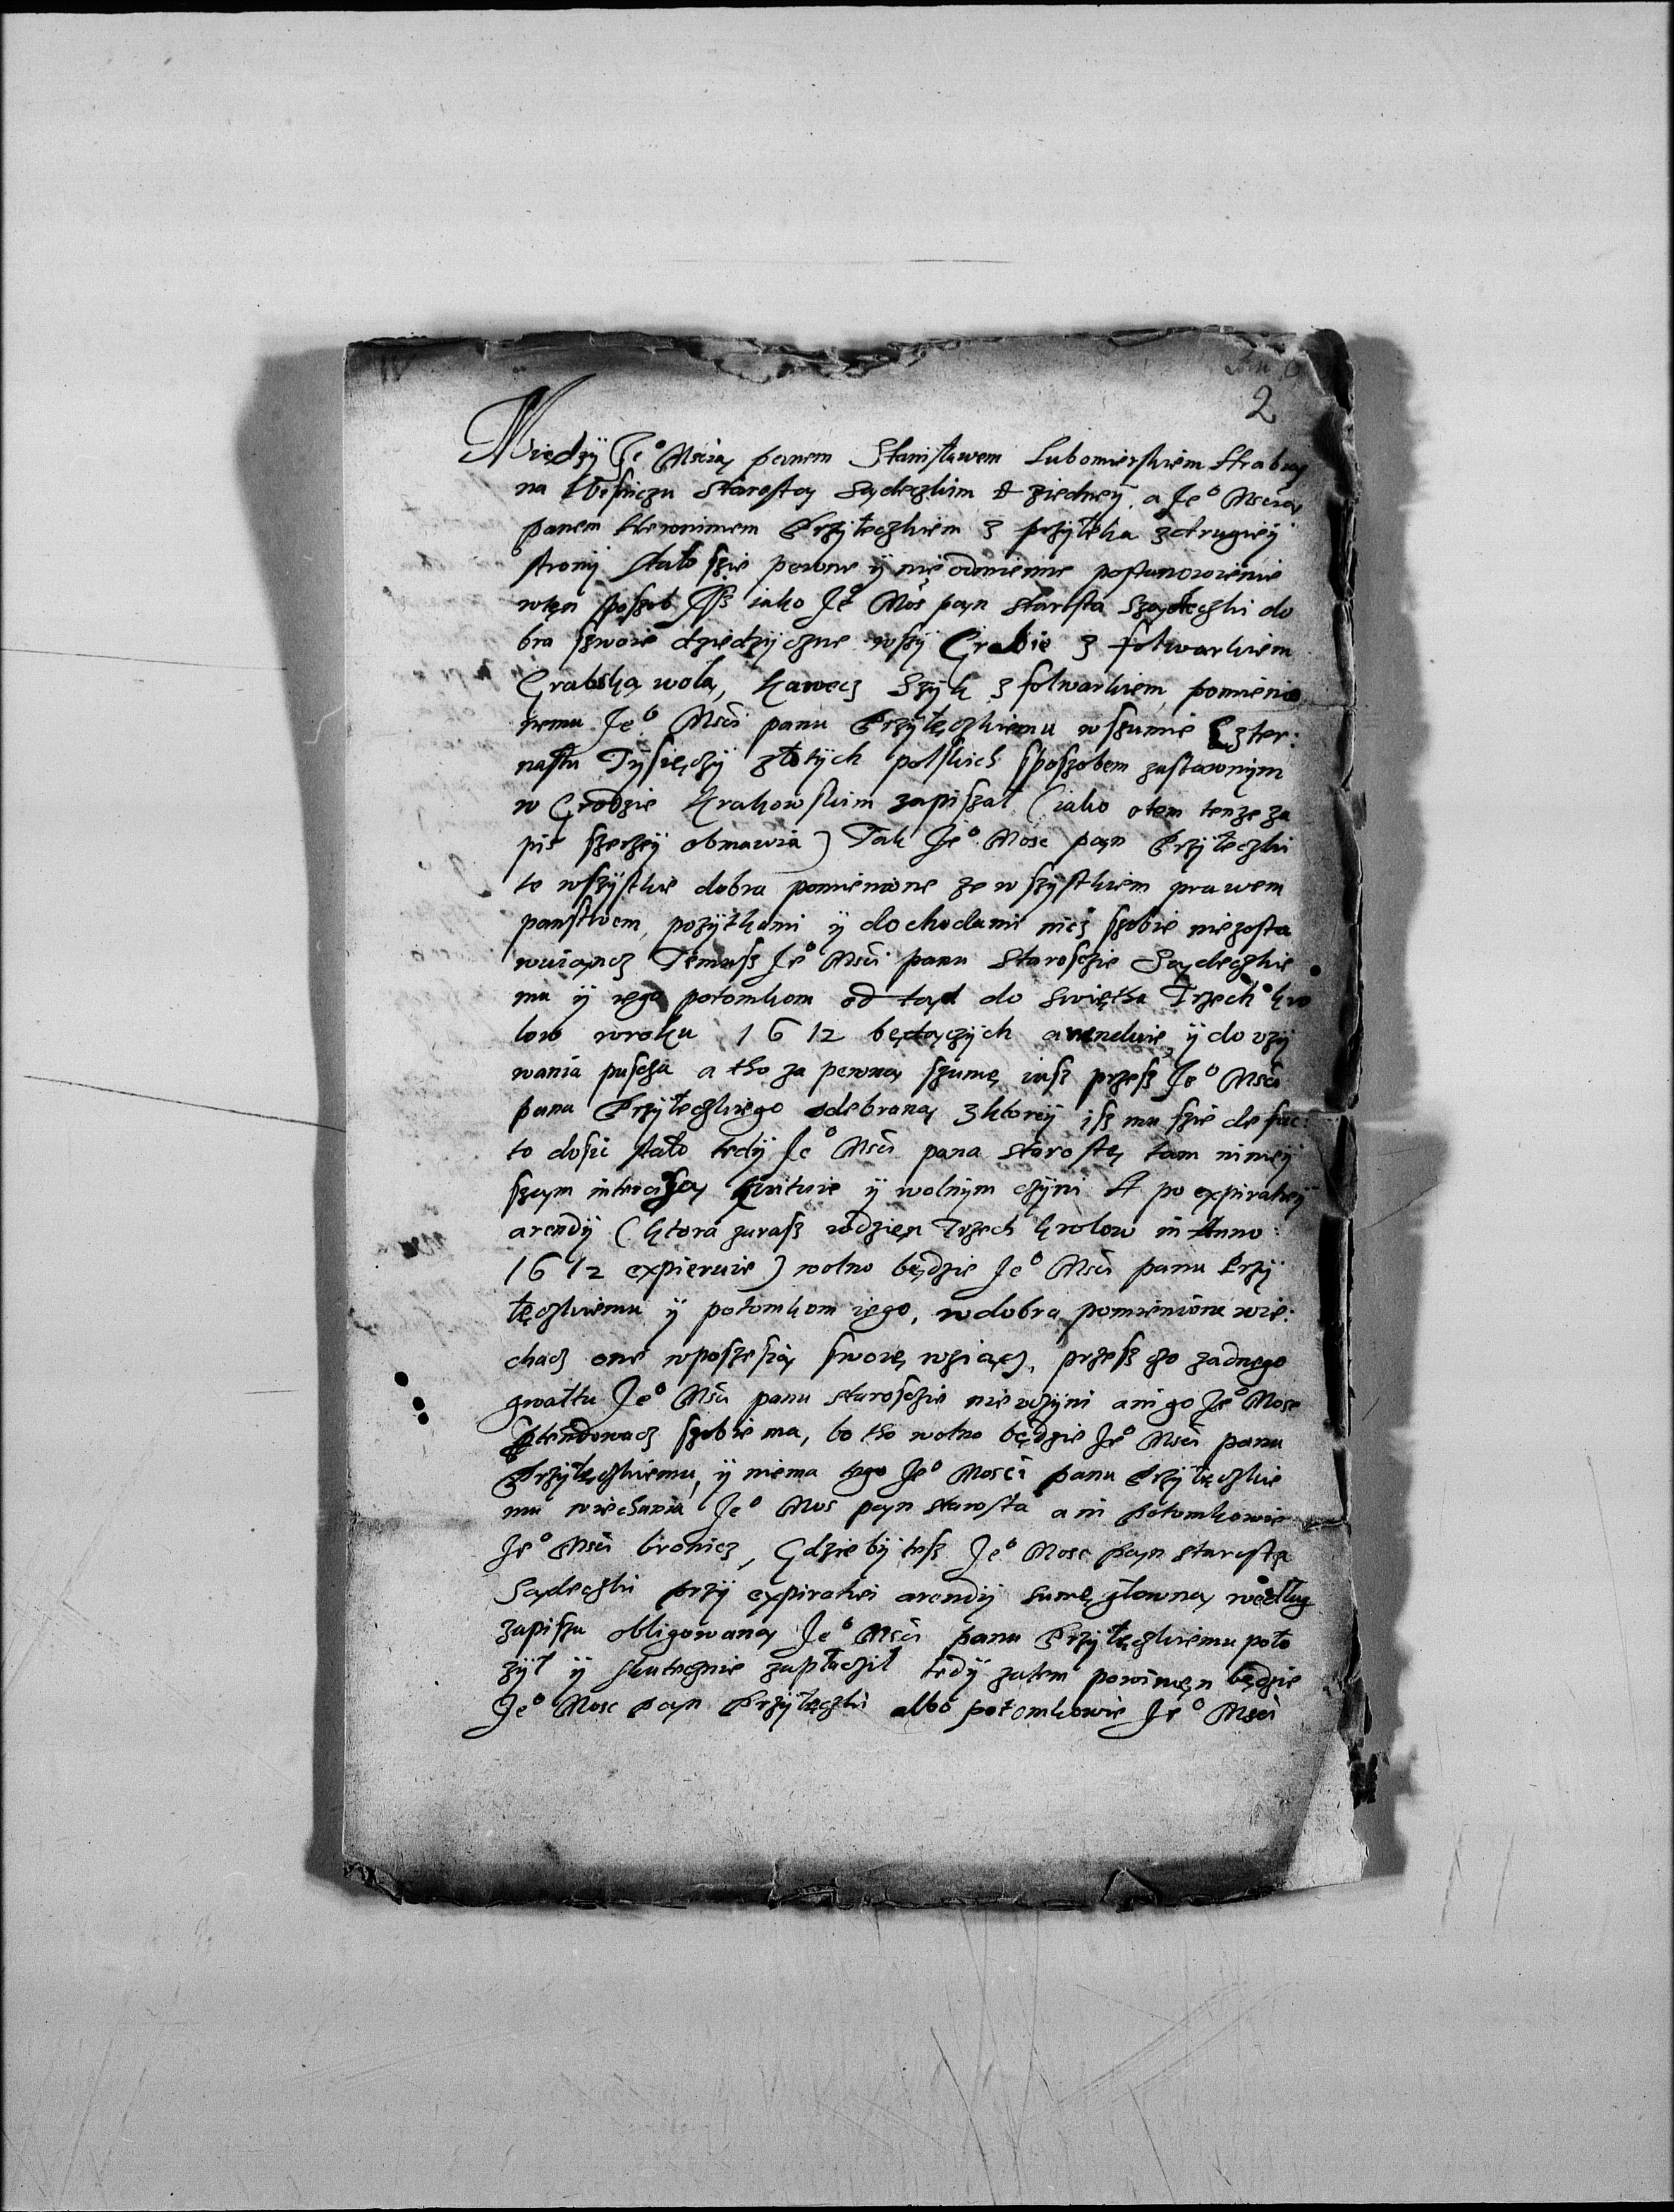 2
Między Je⁰ Mscią panem Stanisławem Lubomierskiem Hrabią
na Wisniczu Starostą Sądeczkim &c ziedney, a Je⁰ Mscią
panem Hieronimem Przyłeczkiem z przyłeka zdrugiey
strony stało szie pewne ÿ nie odmienne postanowienie
wten sposzob Jsz iako Je⁰ Mos pan starosta Sządeczki do
bra szwoie dziedzyczne wszÿ Grabie z folwarkiem
Grabską wolą, Kawecz Szÿk z folwarkiem, pomienio
nemu Je⁰ Msci panu Przyłęczkiemu wszumie Czter:
nastu Tÿsięczÿ złotÿch polskich sposzobem zastawnÿm
w Grodzie Krakowskim zapiszał (iako otem tenze za
pis szerzeÿ obmawia) Tak Je⁰ Mosc pan Przÿłeczki
te wszÿstkie dobra pomienione ze wszÿstkiem prawem
panstwem, pozÿtkami ÿ dochodami nicz szobie niezosta
wuiącz Temusz Je⁰ Msci panu Staroscie Sądeczkie
mu ÿ iego potomkom od tąd do swięta Trzech kro
low wroku 1612 będączÿch arenduie ÿ do vzÿ
wania puscza a tho za pewną szumę iusz przesz Je⁰ Msci
pana Przÿłeczkiego odebraną zktoreÿ isz mu szie de fac:
to dosic stało tedÿ Je⁰ Msci pana starostę tam nineÿ
szem intercizą kwituie ÿ wolnÿm czÿni A po expiratieÿ
arendÿ (ktora zarasz wdzien Trzech krolow in Anno
1612 expieruie) wolno będzie Je⁰ Msci panu Przÿ
łęczkiemu ÿ potomkom iego, wdobra pomienione wie:
chacz one wposzesią swoię wziącz, przesz czo zadnego
gwałtu Je⁰ Msci panu staroscie nie vczÿni ani go Je⁰ Mosc
pretendowacz szobie ma, bo tho wolno będzie Je⁰ Msci panu
Przÿłęczkiemu, ÿ niema tego Je⁰ Mosci panu Przÿłęczkie
mu wiechania Je⁰ Mos pan starosta ani potomkowie
Je⁰ Msci bronicz, Gdziebÿ tesz Je⁰ Mosc pan starosta
Sądeczki przÿ expiratiei arendÿ sumę głowną według
zapiszu obligowaną Je⁰ Msci panu Przÿłęczkiemu poło
zÿł ÿ skutecznie zapłacził tedÿ zatem powinien będzie
Je⁰ Mosc pan Przÿłęczki albo potomkowie Je⁰ Msci